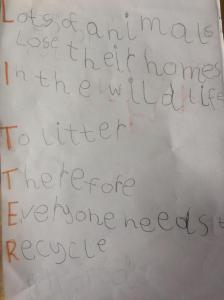 Lots of animals
Lose their homes
In the wild life
To litter
Therefore
Everyone needs t
Recycle